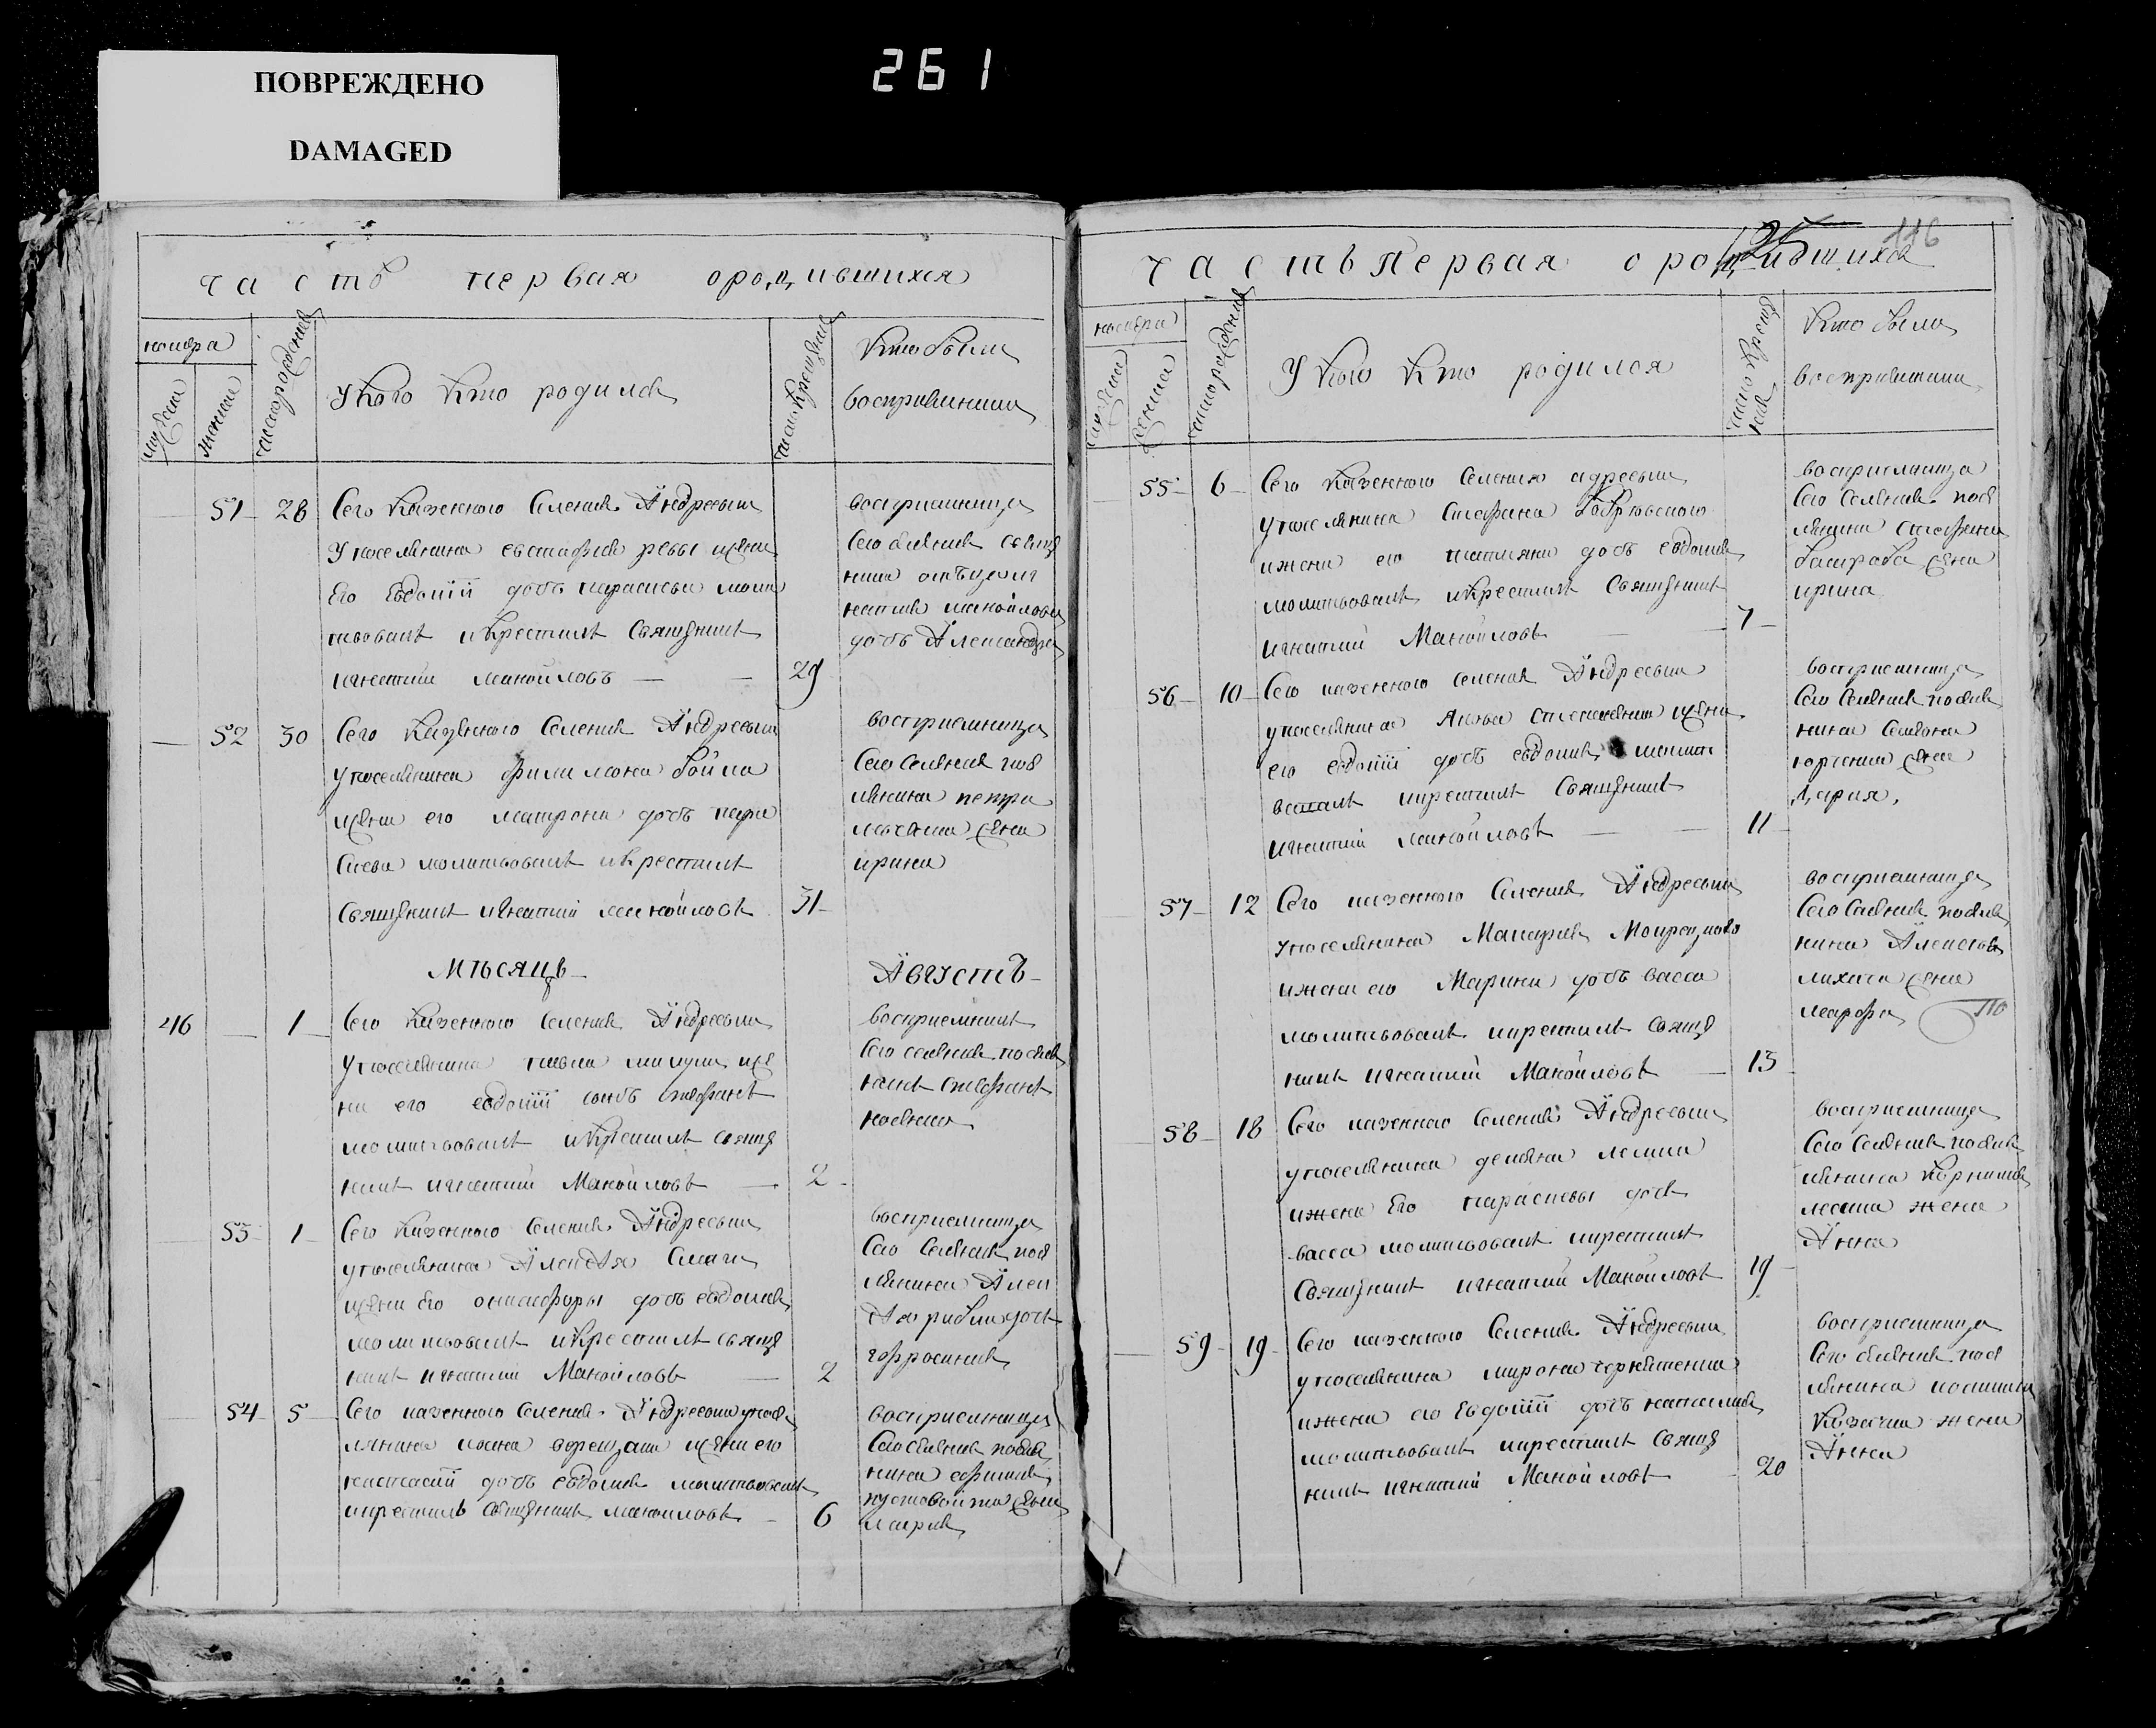 ПОВРЕЖДЕНО
DAMAGED
261
часть первая ородившихся
номера
мужеска
женска
число рождения
У кого кто родился
число крещения
Кто были
восприемники
51 28 Сего казенного Селения Андреевки
Упоселянина евстафия ревы ижены
Его Евдокии дочь параскева моли
твовалъ икрестилъ Священикъ
игнатий манойловъ 29
восприемница
Сего селения свяще
ника
игнатия манойлова
дочь Александра
52 30 Сего казенного Селения Андреевки
упоселянина филимона бойка
ижены его матроны дочь пара
скева молитвовалъ икрестилъ
Священикъ игнатий манойловъ 31
восприемница
Сего Селения посе
лянина петра
жена
ирина
Мѣсяцъ
Августъ
46 1 Сего казенного Селения Андреевки
упоселянина павла ижe
ны его евдокии сынъ стефанъ
молитвовалъ икрестилъ свяще
никъ игнатий Манойловъ 2
восприемникъ
Сего селения поселя
нинъ стефанъ
53 1 Сего казенного Селения Андреевки
упоселянина Алексея
ижены Его дочь евдокия
молитвовалъ икрестилъ свяще
никъ игнатий Манойловъ 2
восприемница
Сего Селения посе
лянина Алек
сея дочь
54 5 Сего казенного Селения Андреевки упосе
лянина ижены его
настасии дочь евдокия молитвовалъ
икрестилъ священикъ манойловъ 6
восприемница
Сего селения поселя
нина
жена
мария
116
часть первая ородившихся
номера
мужеска
женска
число рождения
У кого кто родился
число крещения
Кто были
восприемники
55 6 Сего казенного Селения адреевки
упоселянина Стефана
ижены его татияны дочь евдокия
молитвовалъ икрестилъ Священикъ
игнатий Манойловъ 7
восприемница
Сего Селения посе
лянина стефана
жена
ирина
56 10 Сего казенного селения Андреевки
упоселянина Якова ижены
его евдокии дочь евдокия молит
вовалъ икрестилъ Священикъ
игнатий манойловъ 11
восприемница
Сего Селения поселя
нина Семена
жена
дария
57 12 Сего казенного Селения Андреевки
упоселянина Макария
ижены его Марины дочь васса
молитвовалъ икрестилъ свяще
никъ игнатий Манойловъ 13
восприемница
Сего Селения поселя
нина Алексея
жена
марфа
58 18 Сего казенного Селения Андреевки
упоселянина демяна
ижены Его параскевы дочь
васса молитвовалъ икрестилъ
Священикъ игнатий Манойловъ 19
восприемница
Сего Селения
корнилия
жена
Анна
59 19 Сего казенного Селения Андреевки
упоселянина мирона
ижены его Евдокии дочь наталия
молитвовалъ икрестилъ Свяще
никъ игнатий Манойловъ 20
восприемница
Сего селения посе
лянина
жена
Анна